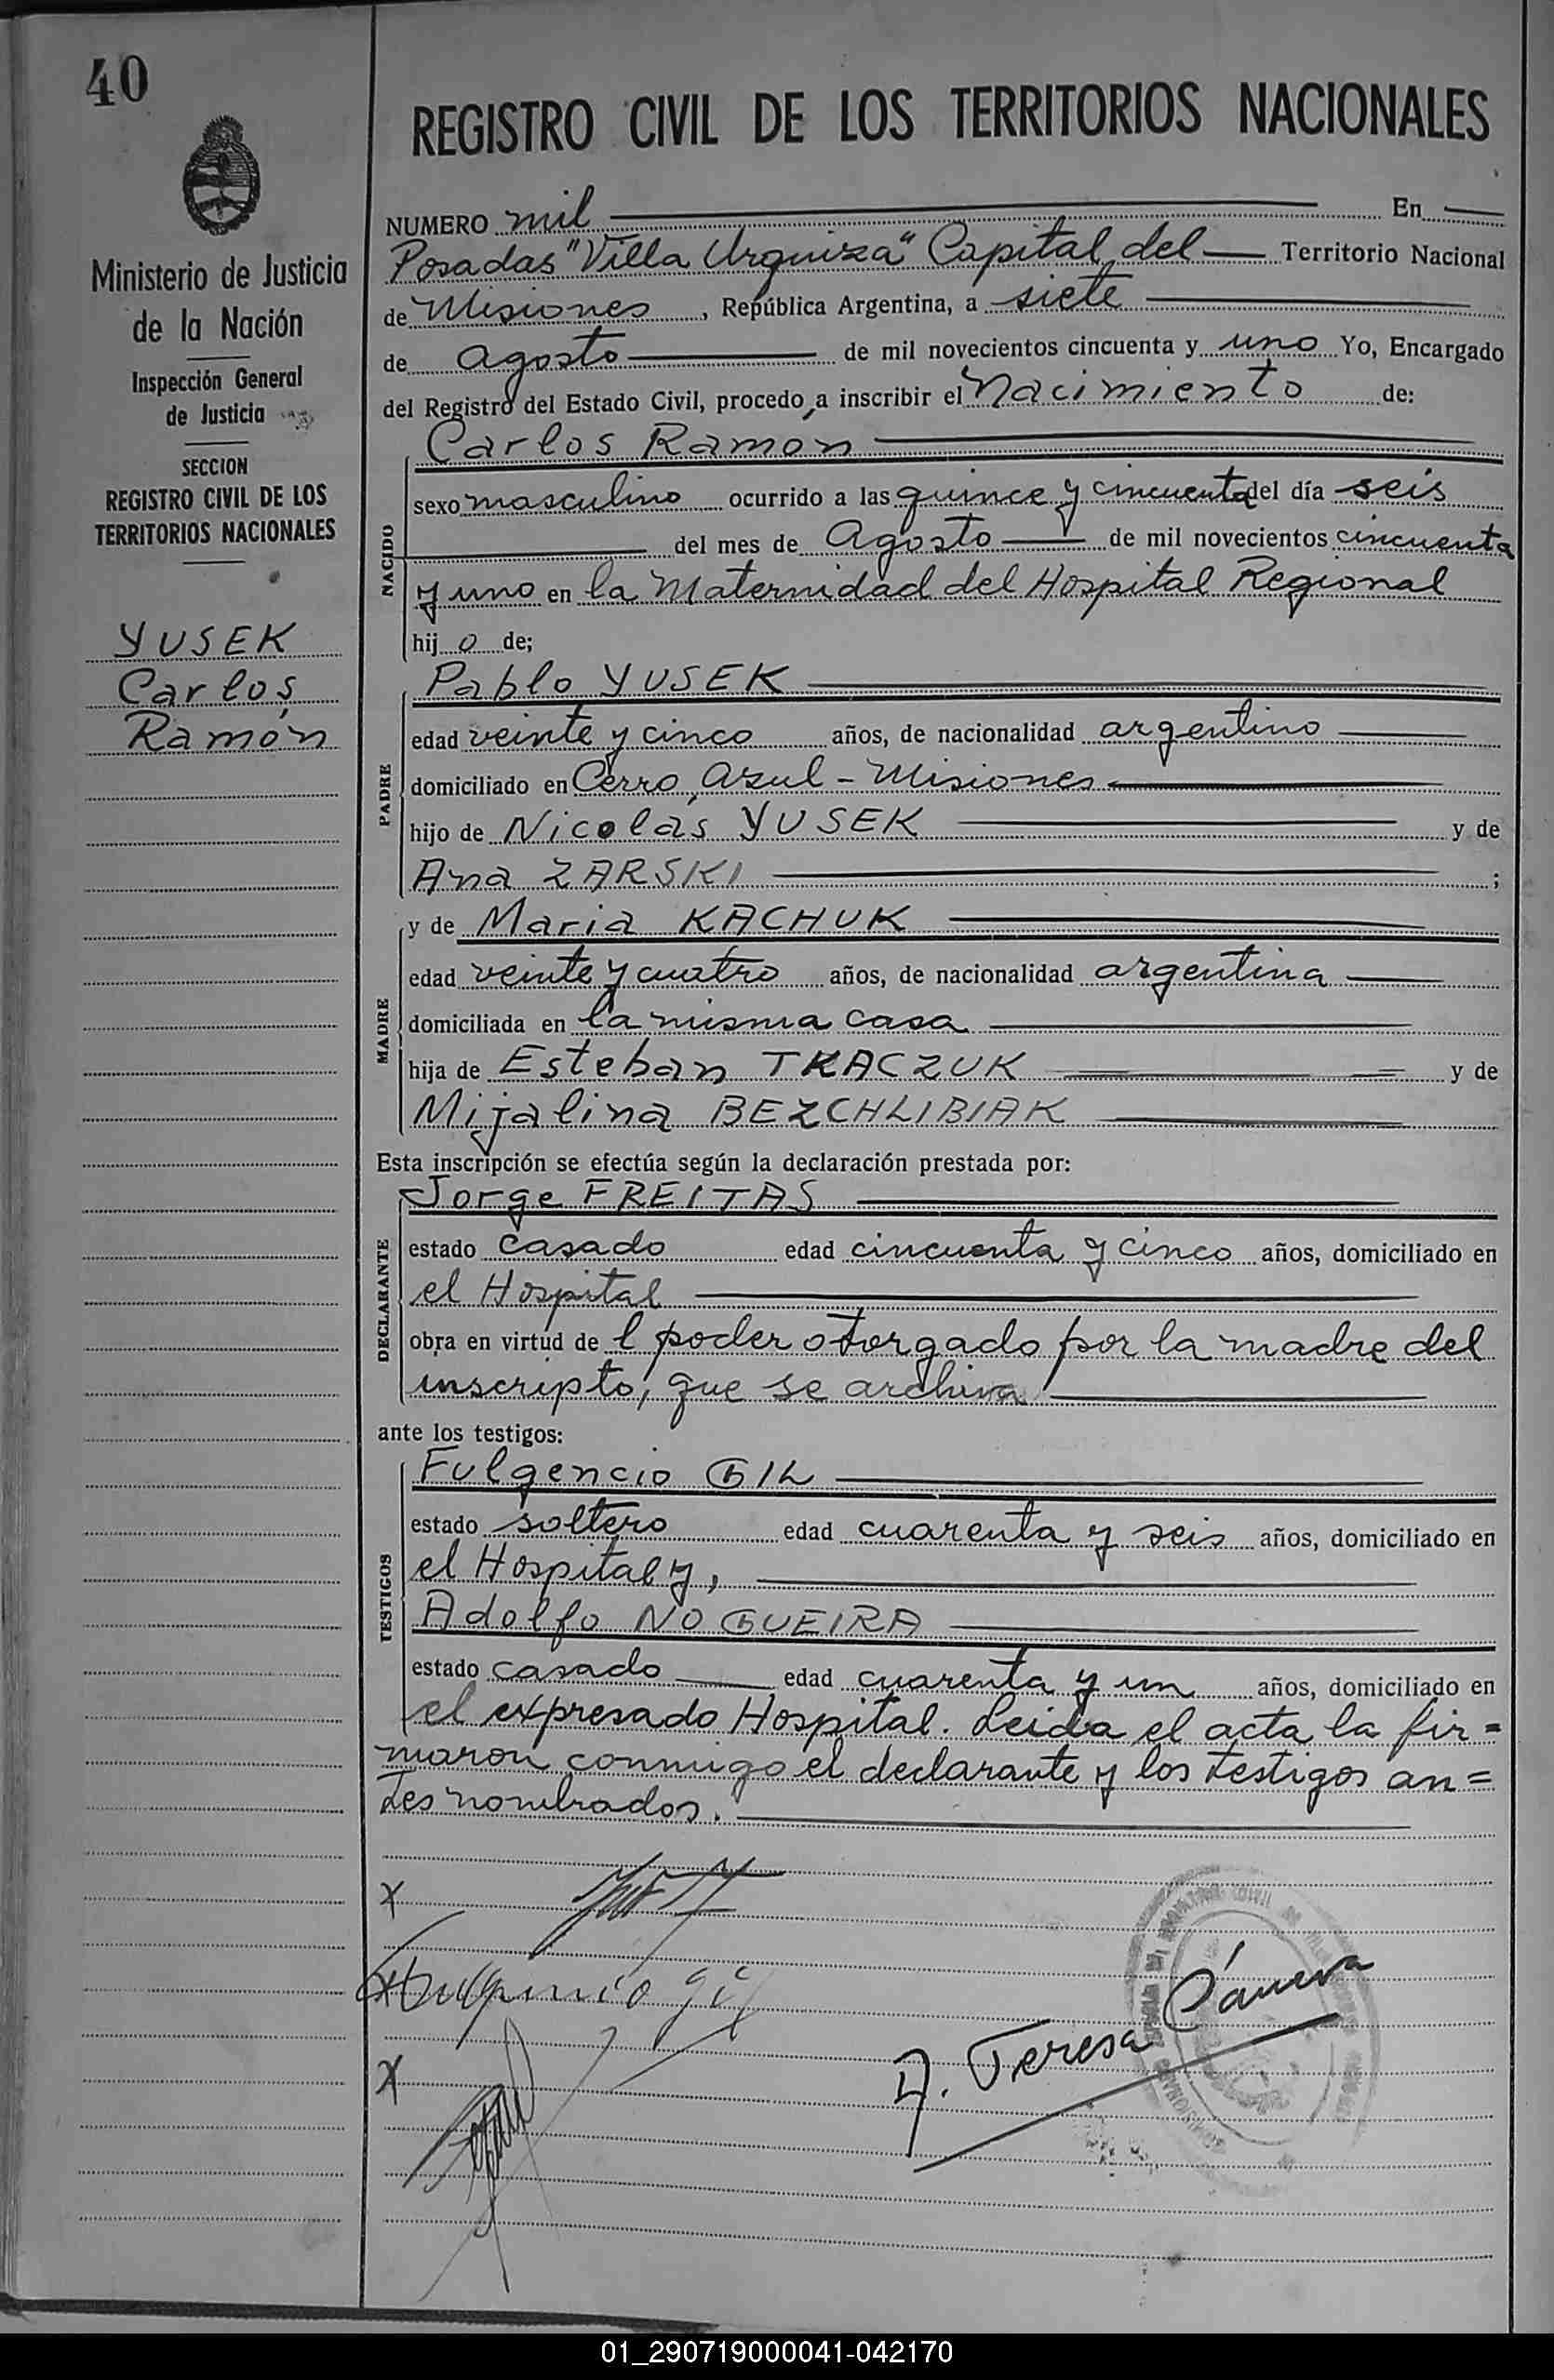 40
Ministerio de Justicia
de la Nación
Inspección General
de Justicia
SECCION
REGISTRO CIVIL DE LOS
TERRITORIOS NACIONALES
YUSEK
Carlos
Ramón
REGISTRO CIVIL DE LOS TERRITORIOS NACIONALES
NUMERO mil En
Posadas "Villa Urquiza" Capital del Territorio Nacional
de Misiones, República Argentina, a siete
de agosto de mil novecientos cincuenta y uno Yo, Encargado
del Registro del Estado Civil, procedo a inscribir el Nacimiento de:
NACIDO
Carlos Ramón
sexo masculino ocurrido a las quince y cincuenta del día seis
del mes de Agosto de mil novecientos cincuenta
y uno en la Maternidad del Hospital Regional
hij o de;
PADRE
Pablo YUSEK
edad veinte y cinco años, de nacionalidad argentino
domiciliado en Cerro Azul - Misiones
hijo de Nicolás YUSEK y de
Ana ZARSKI ;
MADRE
y de Maria KACHUK
edad veinte y cuatro años, de nacionalidad argentina
domiciliada en la misma casa
hija de Esteban TKACZUK y de
Mijalina BEZCHLIBIAK
Esta inscripción se efectúa según la declaración prestada por:
DECLARANTE
Jorge FREITAS
estado casado edad cincuenta y cinco años, domiciliado en
el Hospital
obra en virtud de l poder otorgado por la madre del
inscripto, que se archiva
ante los testigos:
TESTIGOS
Fulgencio GIL
estado soltero edad cuarenta y seis años, domiciliado en
el Hospital y,
Adolfo NOGUEIRA
estado casado edad cuarenta y un años, domiciliado en
el expresado Hospital. Leida el acta la fir=
maron conmigo el declarante y los testigos an=
tes nombrados.
x
Fulgencio gil
x
A. Teresa
01_290719000041-042170